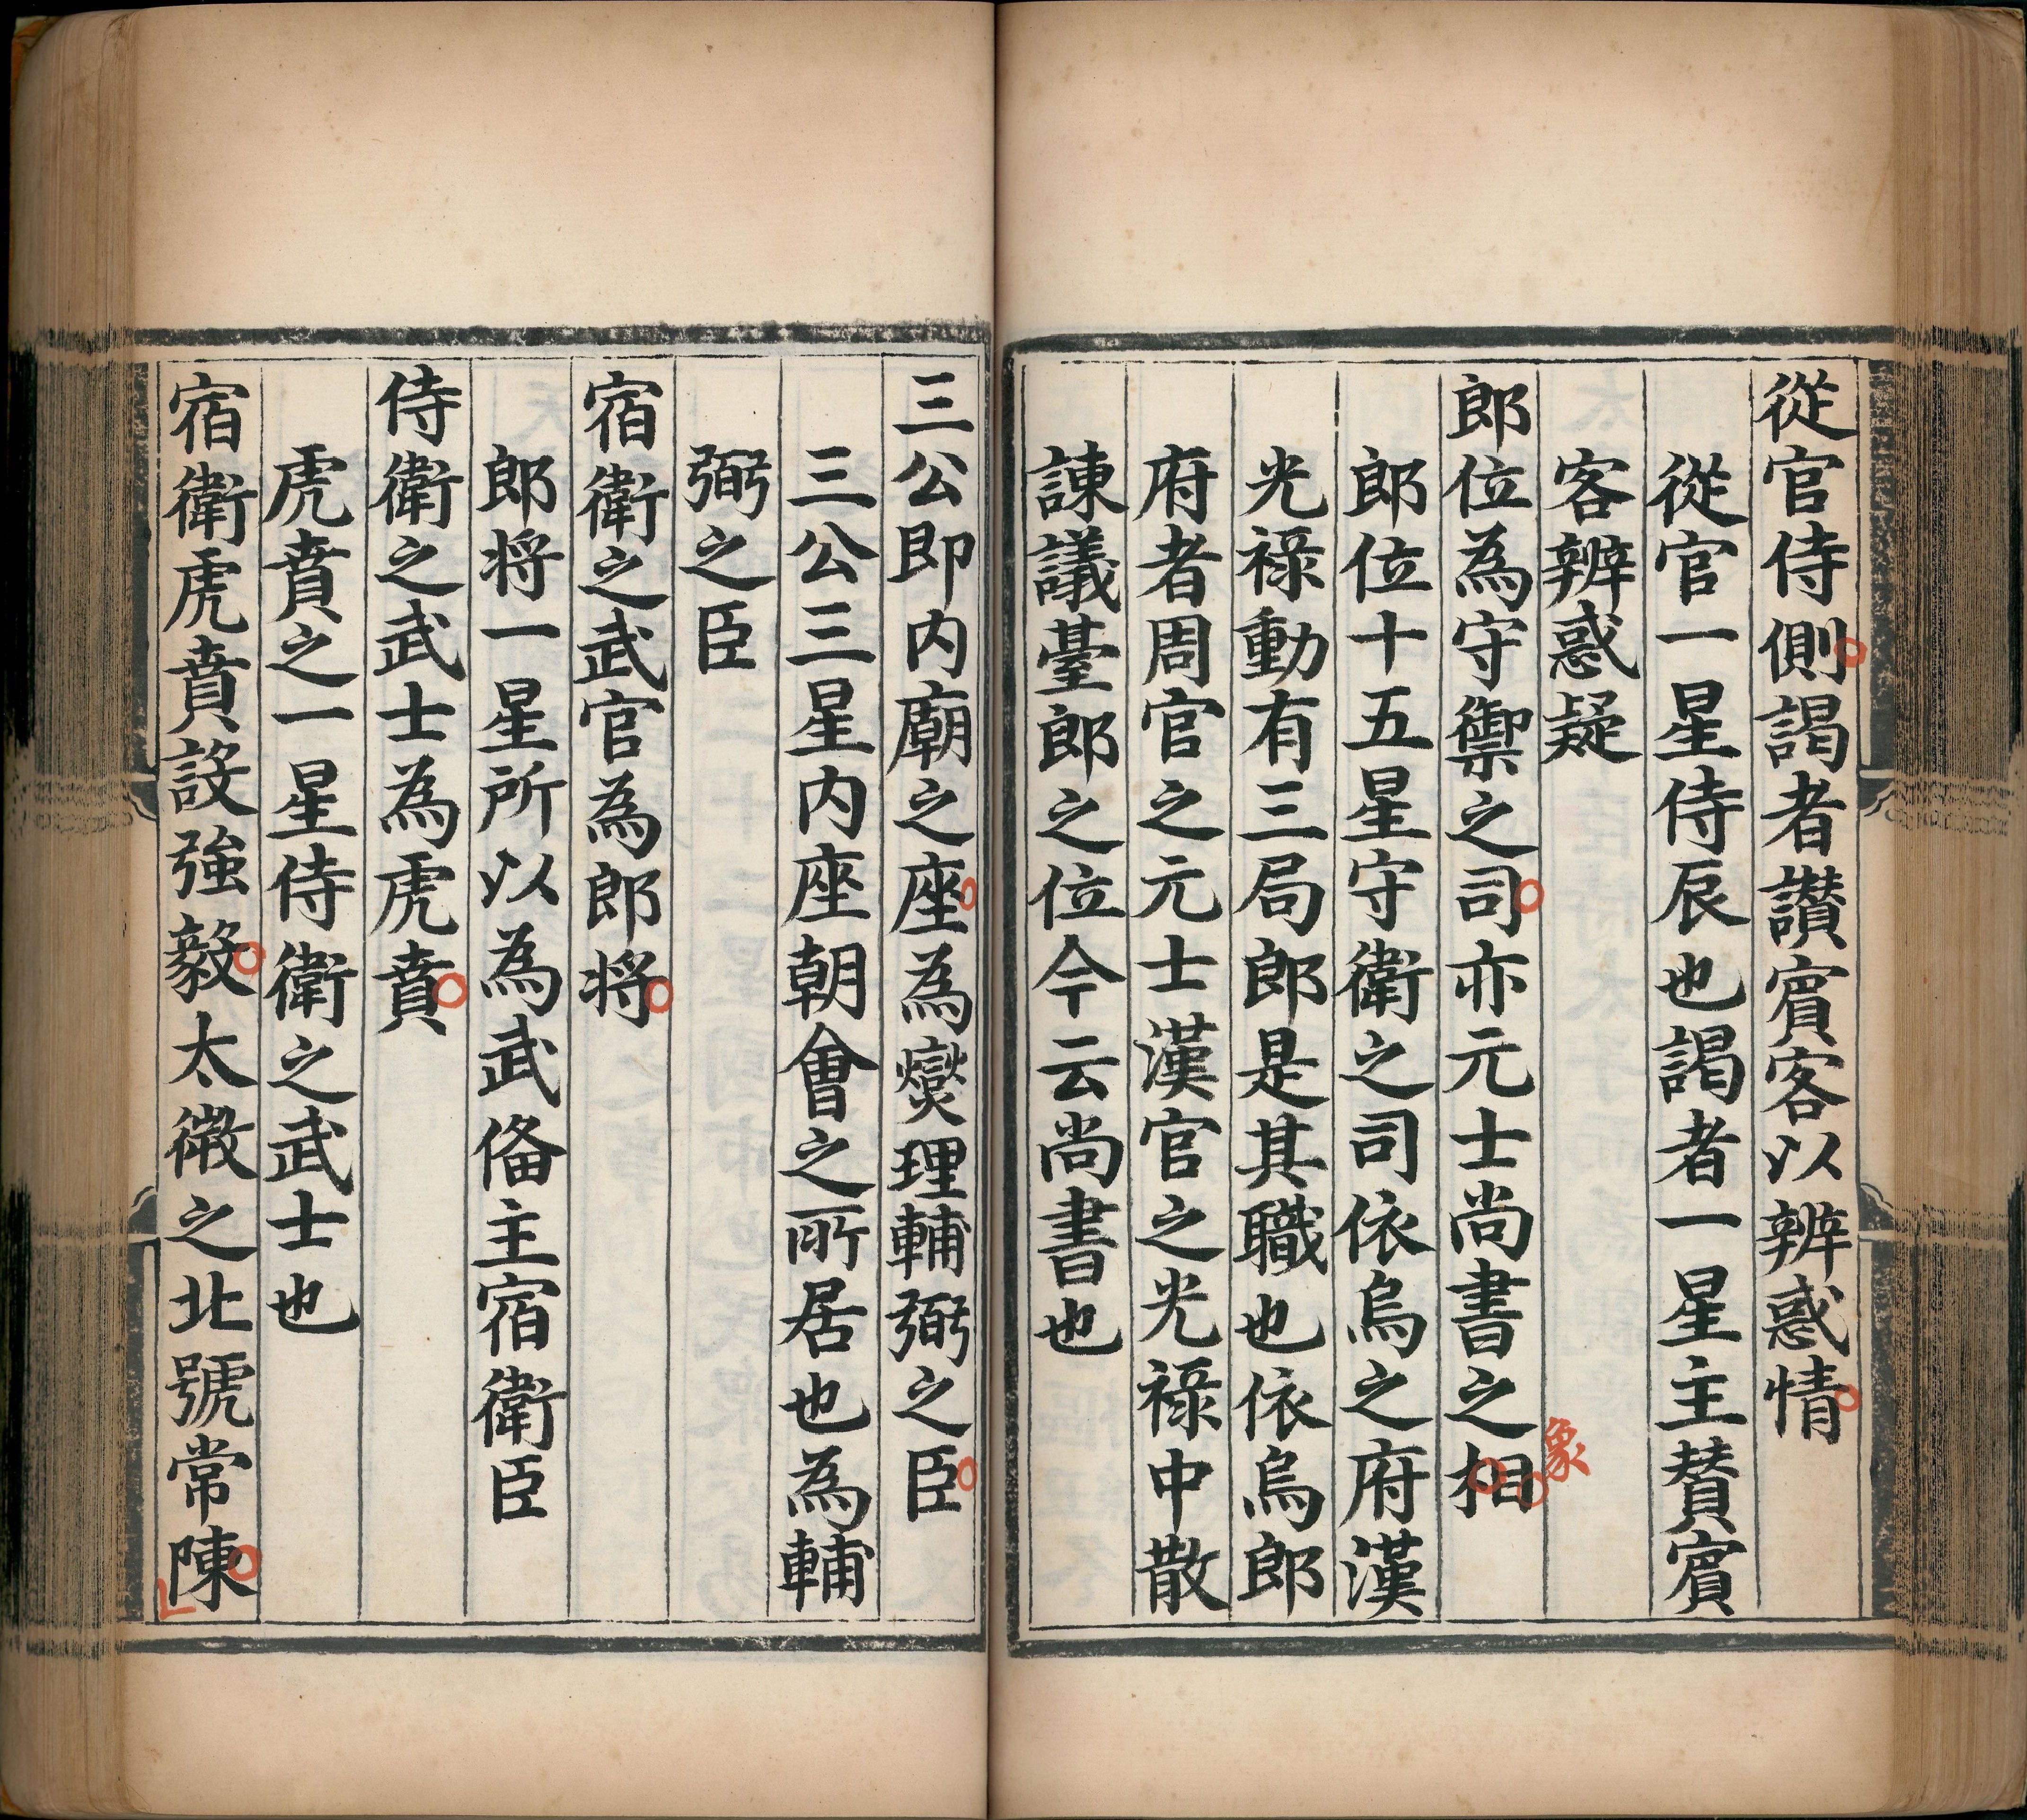 從官侍側謁者讚賓客以辨惑情
從官一星侍辰也謁者一星主賛賓
客辨惑疑
郎位為守禦之司亦元士尚書之相
象
郎位十五星守衛之司依烏之府漢
光禄動有三局郎是其職也依烏郎
府者周官之元士漢官之光禄中散
諫議臺郎之位今云尚書也
三公即内廟之座為爕理輔弼之臣
三公三星内座朝會之所居也為輔
弼之臣
宿衛之武官為郎将
郎将一星所以為武俻主宿衛臣
侍衛之武士為虎賁
虎賁之一星侍衛之武士也
宿衛虎賁設強毅太微之北號常陳